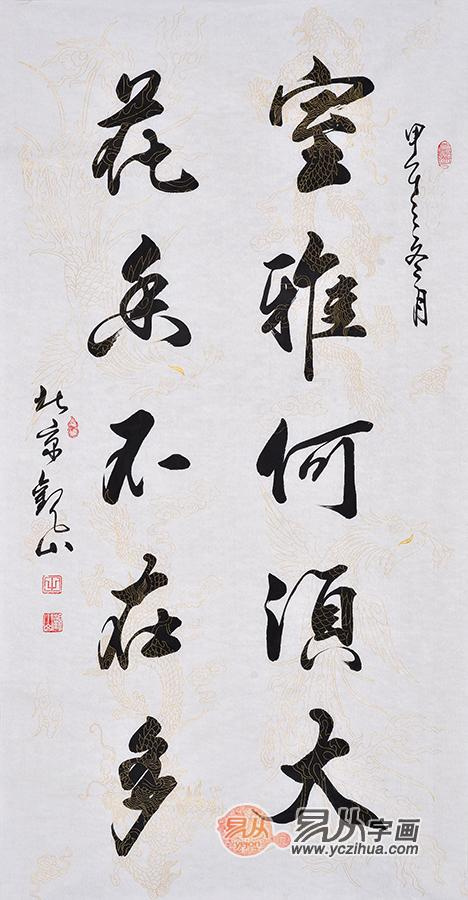 室雅何須大
花香不在多
北京
易从
易从字画
www.yczihua.com